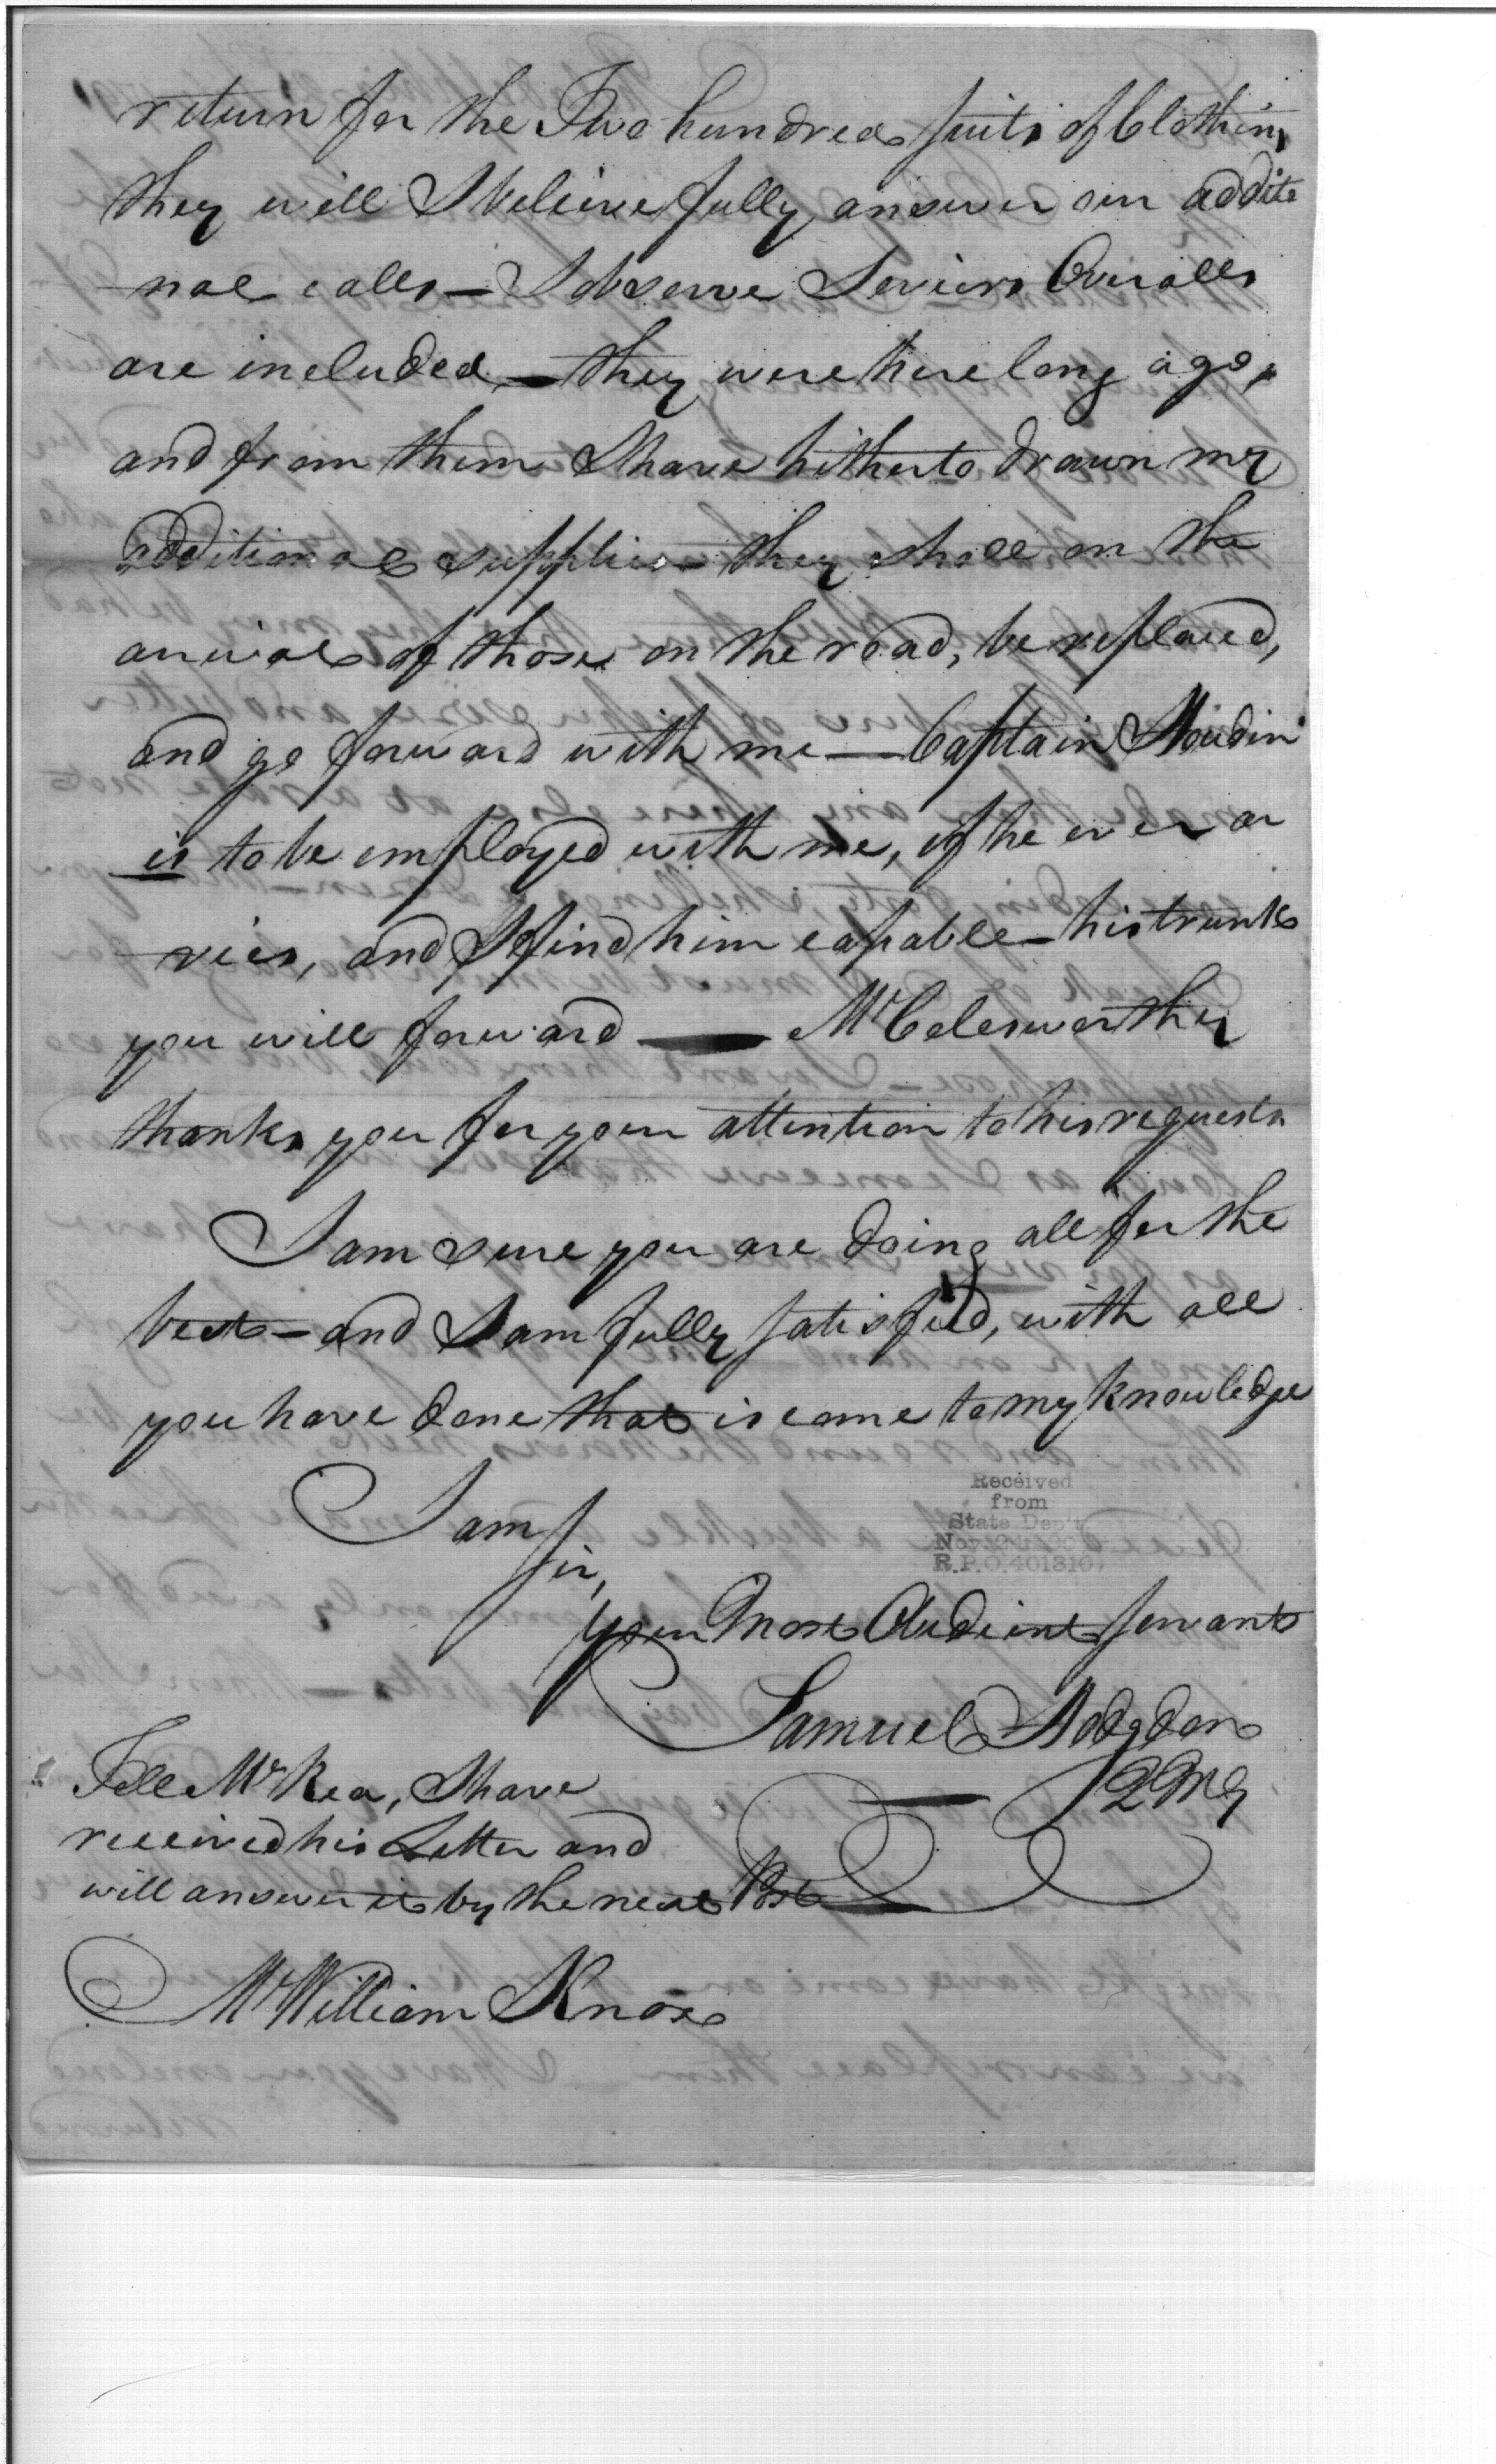 return for the Two hundred suits of Clothing
they will I believe fully answer our additio
nal calls — I observe Seviers Overalls
are included — they were here long ago,
and from them I have hitherto drawn my
additional supplies — they shall on the
arrival of those on the road, be replaced,
and go forward with me — Captain Houdin
is to be employed with me, if he ever ar
rives, and I find him capable — his trunks
you will forward — Mr Colesworthy
thanks you for your attention to his requests
I am sure you are doing all for the
best — and I am fully satisfied, with all
you have done that is come to my knowledge
I am
Sir,
Your Most Obedient Servant
Samuel Hodgdon
QMG
Received
from
State Dep't
R.P.O. 401310
Tell Mr Rea, I have
received his Letter and
will answer it by the next Post
Mr William Knox